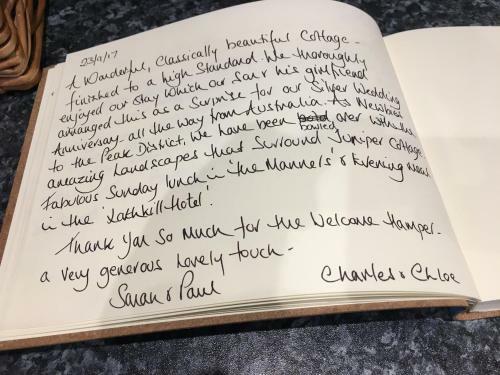 23/9/17
A Wonderful, Classically beautiful Cottage -
finished to a high Standard. We thoroughly
enjoyed our stay which our Son & his girlfriend
arranged this as a Surprise for our Silver Wedding
Anniversary - all the way from Australia. As Newbies
to the Peak District, we have been bowled over with the
amazing landscapes that Surround Juniper Cottage.
Fabulous Sunday lunch in 'the Manners' & Evening meal
in the 'Lathkill Hotel'.
Thank You So Much for the Welcome Hamper -
a very generous lovely touch -
Sarah & Paul
Charles & Chloe